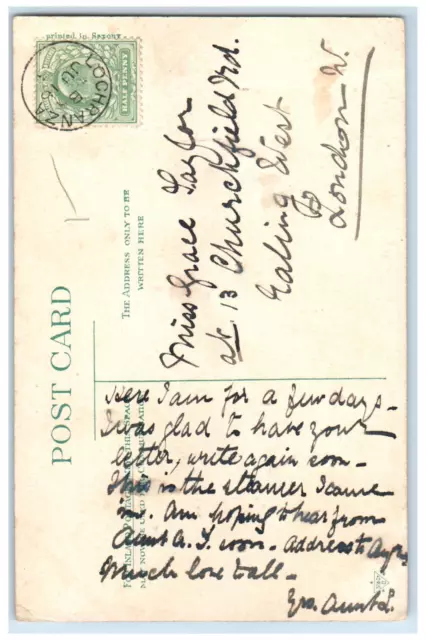 printed in Saxony
HALF PENNY
LOCHRANZA
JU
POST CARD
THE ADDRESS ONLY TO BE
WRITTEN HERE
Miss Grace Taylor
at 13 Churchfield Rd.
Ealing West
London W.
Here I am for a few days -
I was glad to have your
letter, write again soon -
This is the steamer I came
in. Am hoping to hear from
Aunt A. S. soon - Address to
Much love to all -
Yrs. Aunt L.